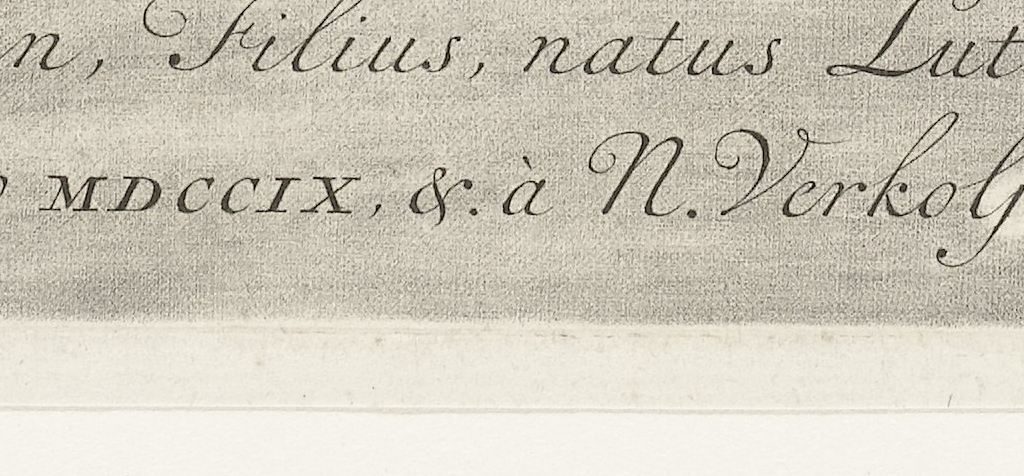 n, Filius, natus Lut
MDCCIX, &. à N. Verkolj